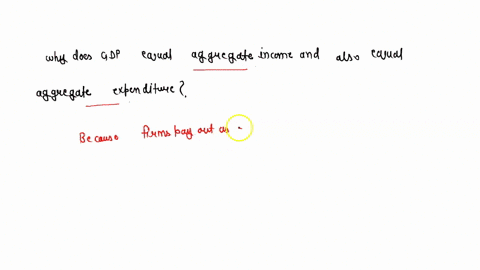 why does GDP equal aggregate income and also equal
aggregate expenditure?
Because firms pay out as